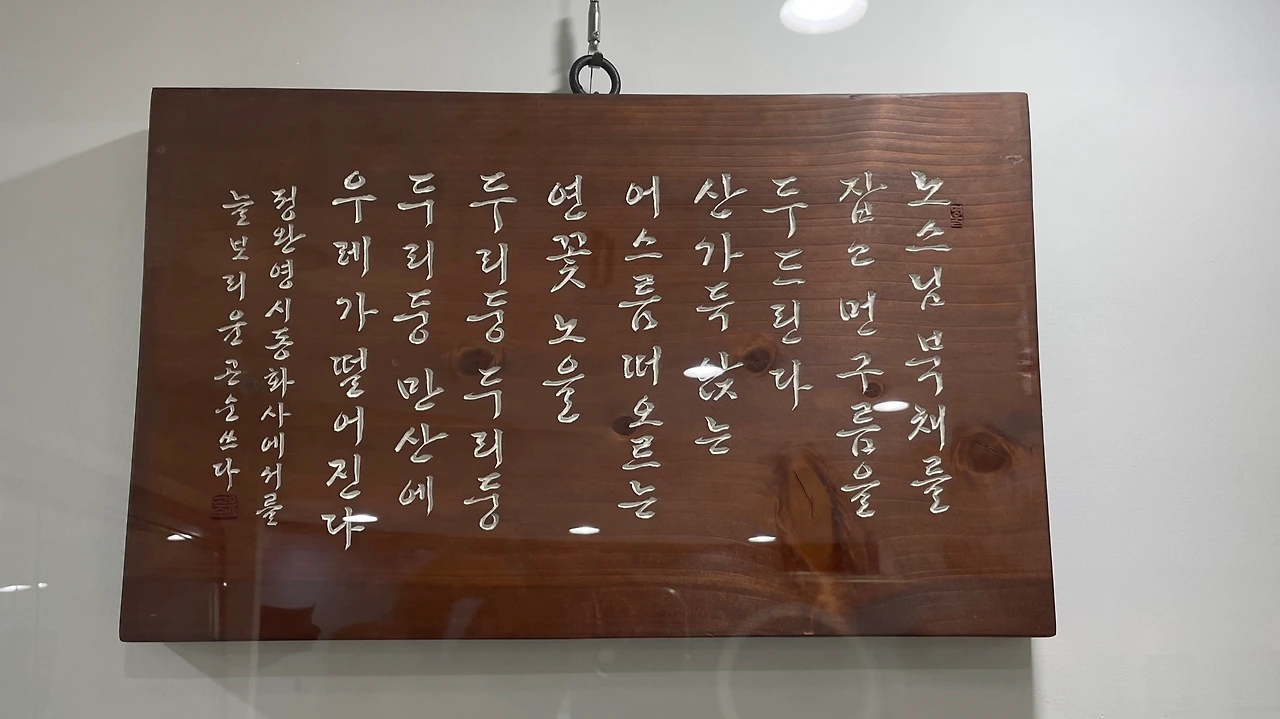 노스님 북채를
잡고 먼 구름을
두드린다
산가득 앉는
어스름 떠오르는
연꽃 노을
두리둥 두리둥
두리둥 만산에
우레가 떨어진다
정완영 시 동화사에서를
늘보리 윤곤순 쓰다